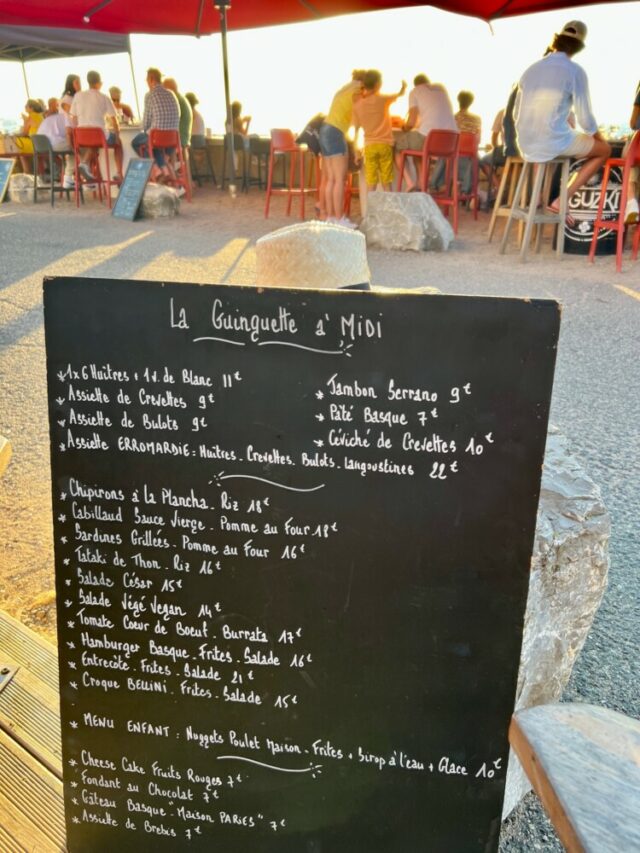 La Guinguette a' MiDi
* 1x6 Huîtres + 1v. de Blanc 11€
* Assiette de Crevettes 9€
* Assiette de Bulots 9€
* Assiette ERROMARDIE : Huîtres - Crevettes - Bulots - Langoustines 22€
* Jambon Serrano 9€
* Pâté Basque 7€
* Céviché de Crevettes 10€
* Chipirons à la Plancha - Riz 18€
* Cabillaud Sauce Vierge - Pomme au Four 18€
* Sardines Grillées - Pomme au Four 16€
* Tataki de Thon - Riz 16€
* Salade César 15€
* Salade Végé Vegan 14€
* Tomate Coeur de Boeuf - Burrata 17€
* Hamburger Basque - Frites - Salade 16€
* Entrecôte - Frites - Salade 21€
* Croque BELLiNi - Frites - Salade 15€
* MENU ENFANT : Nuggets Poulet Maison - Frites + Sirop à l'eau + Glace 10€
* Cheese Cake Fruits Rouges 7€
* Fondant au Chocolat 7€
* Gâteau Basque "Maison PARiES" 7€
* Assiette de Brebis 7€